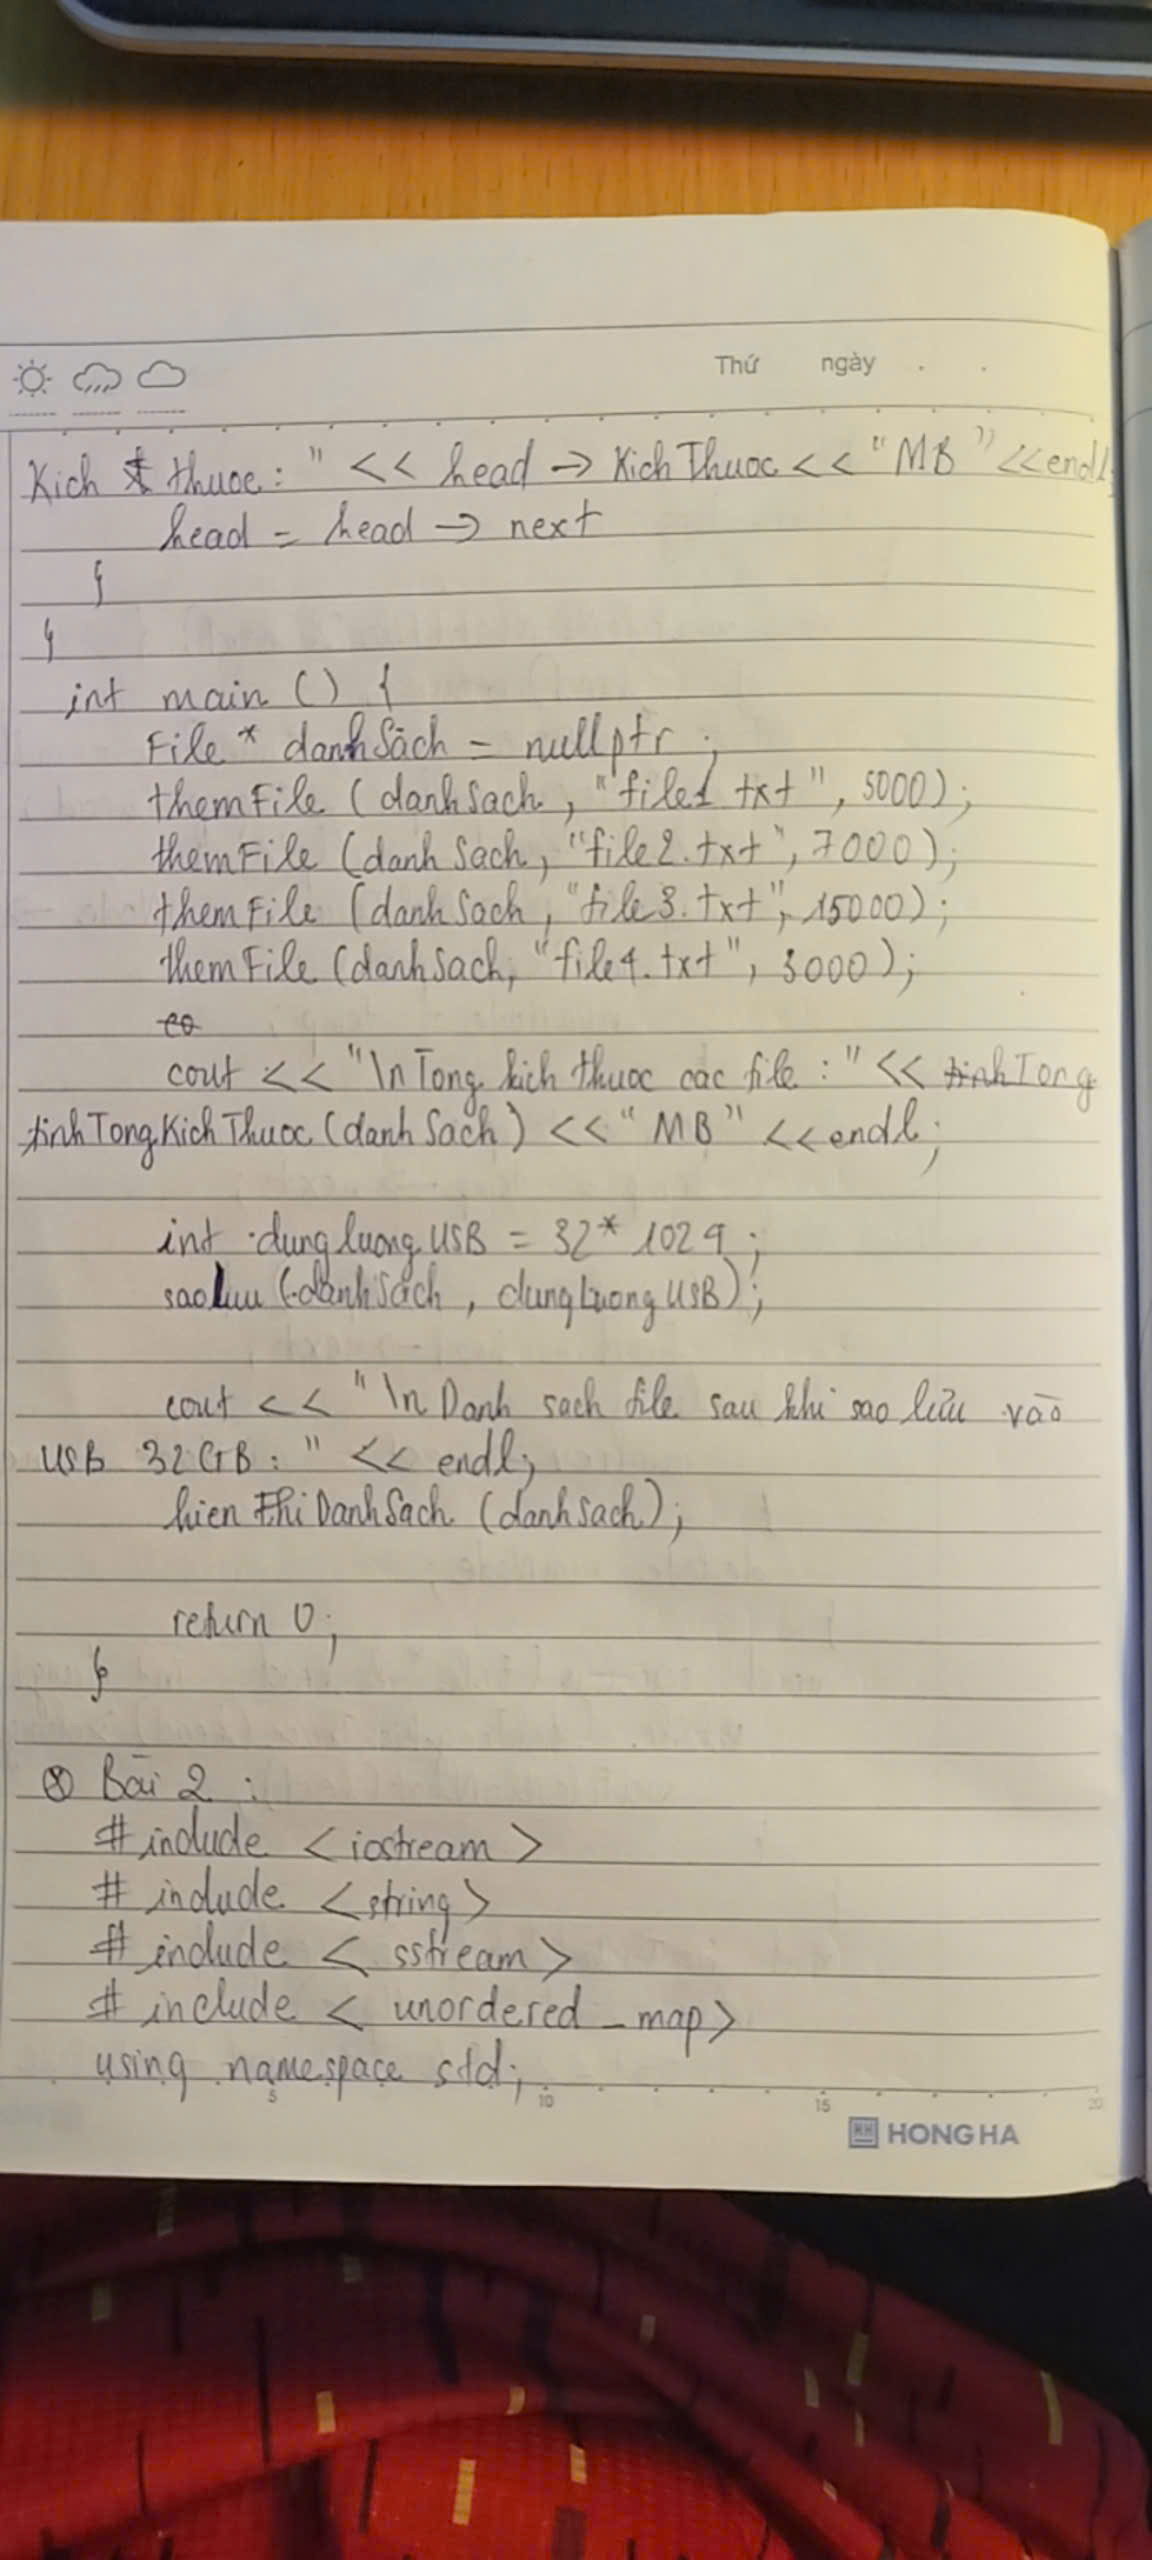 Thứ ngày
Kich thuoc: " << head -> KichThuoc << "MB" << endl;
head = head -> next
}
}
int main () {
File * danhSach = nullptr;
themFile (danhSach, "file1 txt", 5000);
themFile (danhSach, "file2.txt", 7000);
themFile (danhSach, "file3.txt", 15000);
themFile (danhSach, "file4.txt", 3000);
co
cout << "\n Tong kich thuoc các file : " << tinhTong
tinhTongKichThuoc (danhSach) << "MB" << endl;
int dungluongUSB = 32 * 1024;
saoluu (danhSach, dungLuongUSB);
cout << "\n Danh sach file sau khi sao lưu vào
USB 32GB : " << endl;
hienThiDanhSach (danhSach);
return 0;
}
⊗ Bài 2 :
# include <iostream>
# include <string>
# include < sstream>
# include < unordered_map>
using namespace std;
5 10 15 20
HONG HA